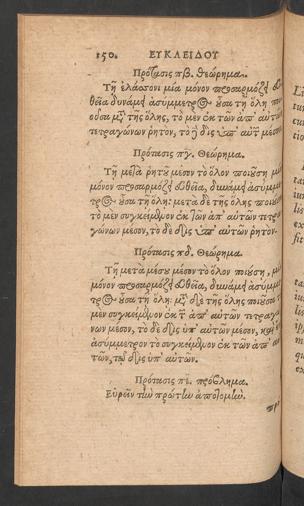 150. ΕΥΚΛΕΙΔΟΥ
Πρότασις πβ. θεώρημα.
Τῇ ἐλάσσονι μία μόνον προσαρμόζει εὐ
θεῖα δυνάμει ἀσύμμετρος οὖσα τῇ ὅλῃ
οὖσα μζ τῆς ὅλης, τὸ μὲν ἐκ τῶν ἀπ' αὐτῶν
τετραγώνων ῥητὸν, τὸ δὲ δὶς ὑπ' αὐτῶν μέσον
Πρότασις πγ. Θεώρημα.
Τῇ μετὰ ῥητοῦ μέσον τὸ ὅλον ποιούσῃ μία
μόνον προσαρμόζει εὐθεῖα, δυνάμει ἀσύμμε
τρος οὖσα τῇ ὅλῃ· μετὰ δὲ τῆς ὅλης ποιοῦσα
τὸ μὲν συγκείμενον ἐκ τῶν ἀπ' αὐτῶν τετρα
γώνων μέσον, τὸ δὲ δὶς ὑπ' αὐτῶν ῥητόν.
Πρότασις πδ. Θεώρημα.
Τῇ μετὰ μέσου μέσον τὸ ὅλον ποιούσῃ, μία
μόνον προσαρμόζει εὐθεῖα, δυνάμει ἀσύμμε
τρος οὖσα τῇ ὅλῃ· μζ δὲ τῆς ὅλης ποιοῦσα τὸ
μὲν συγκείμενον ἐκ τ ἀπ' αὐτῶν τετραγώ
νων μέσον, τὸ δὲ δὶς ὑπ' αὐτῶν μέσον, καὶ
ἀσύμμετρον τὸ συγκείμενον ἐκ τῶν ἀπ' αὐ
τῶν, τῷ δὶς ὑπ' αὐτῶν.
Πρότασις πε. πρόβλημα.
Εὑρεῖν τὴν πρώτην ἀποτομήν.